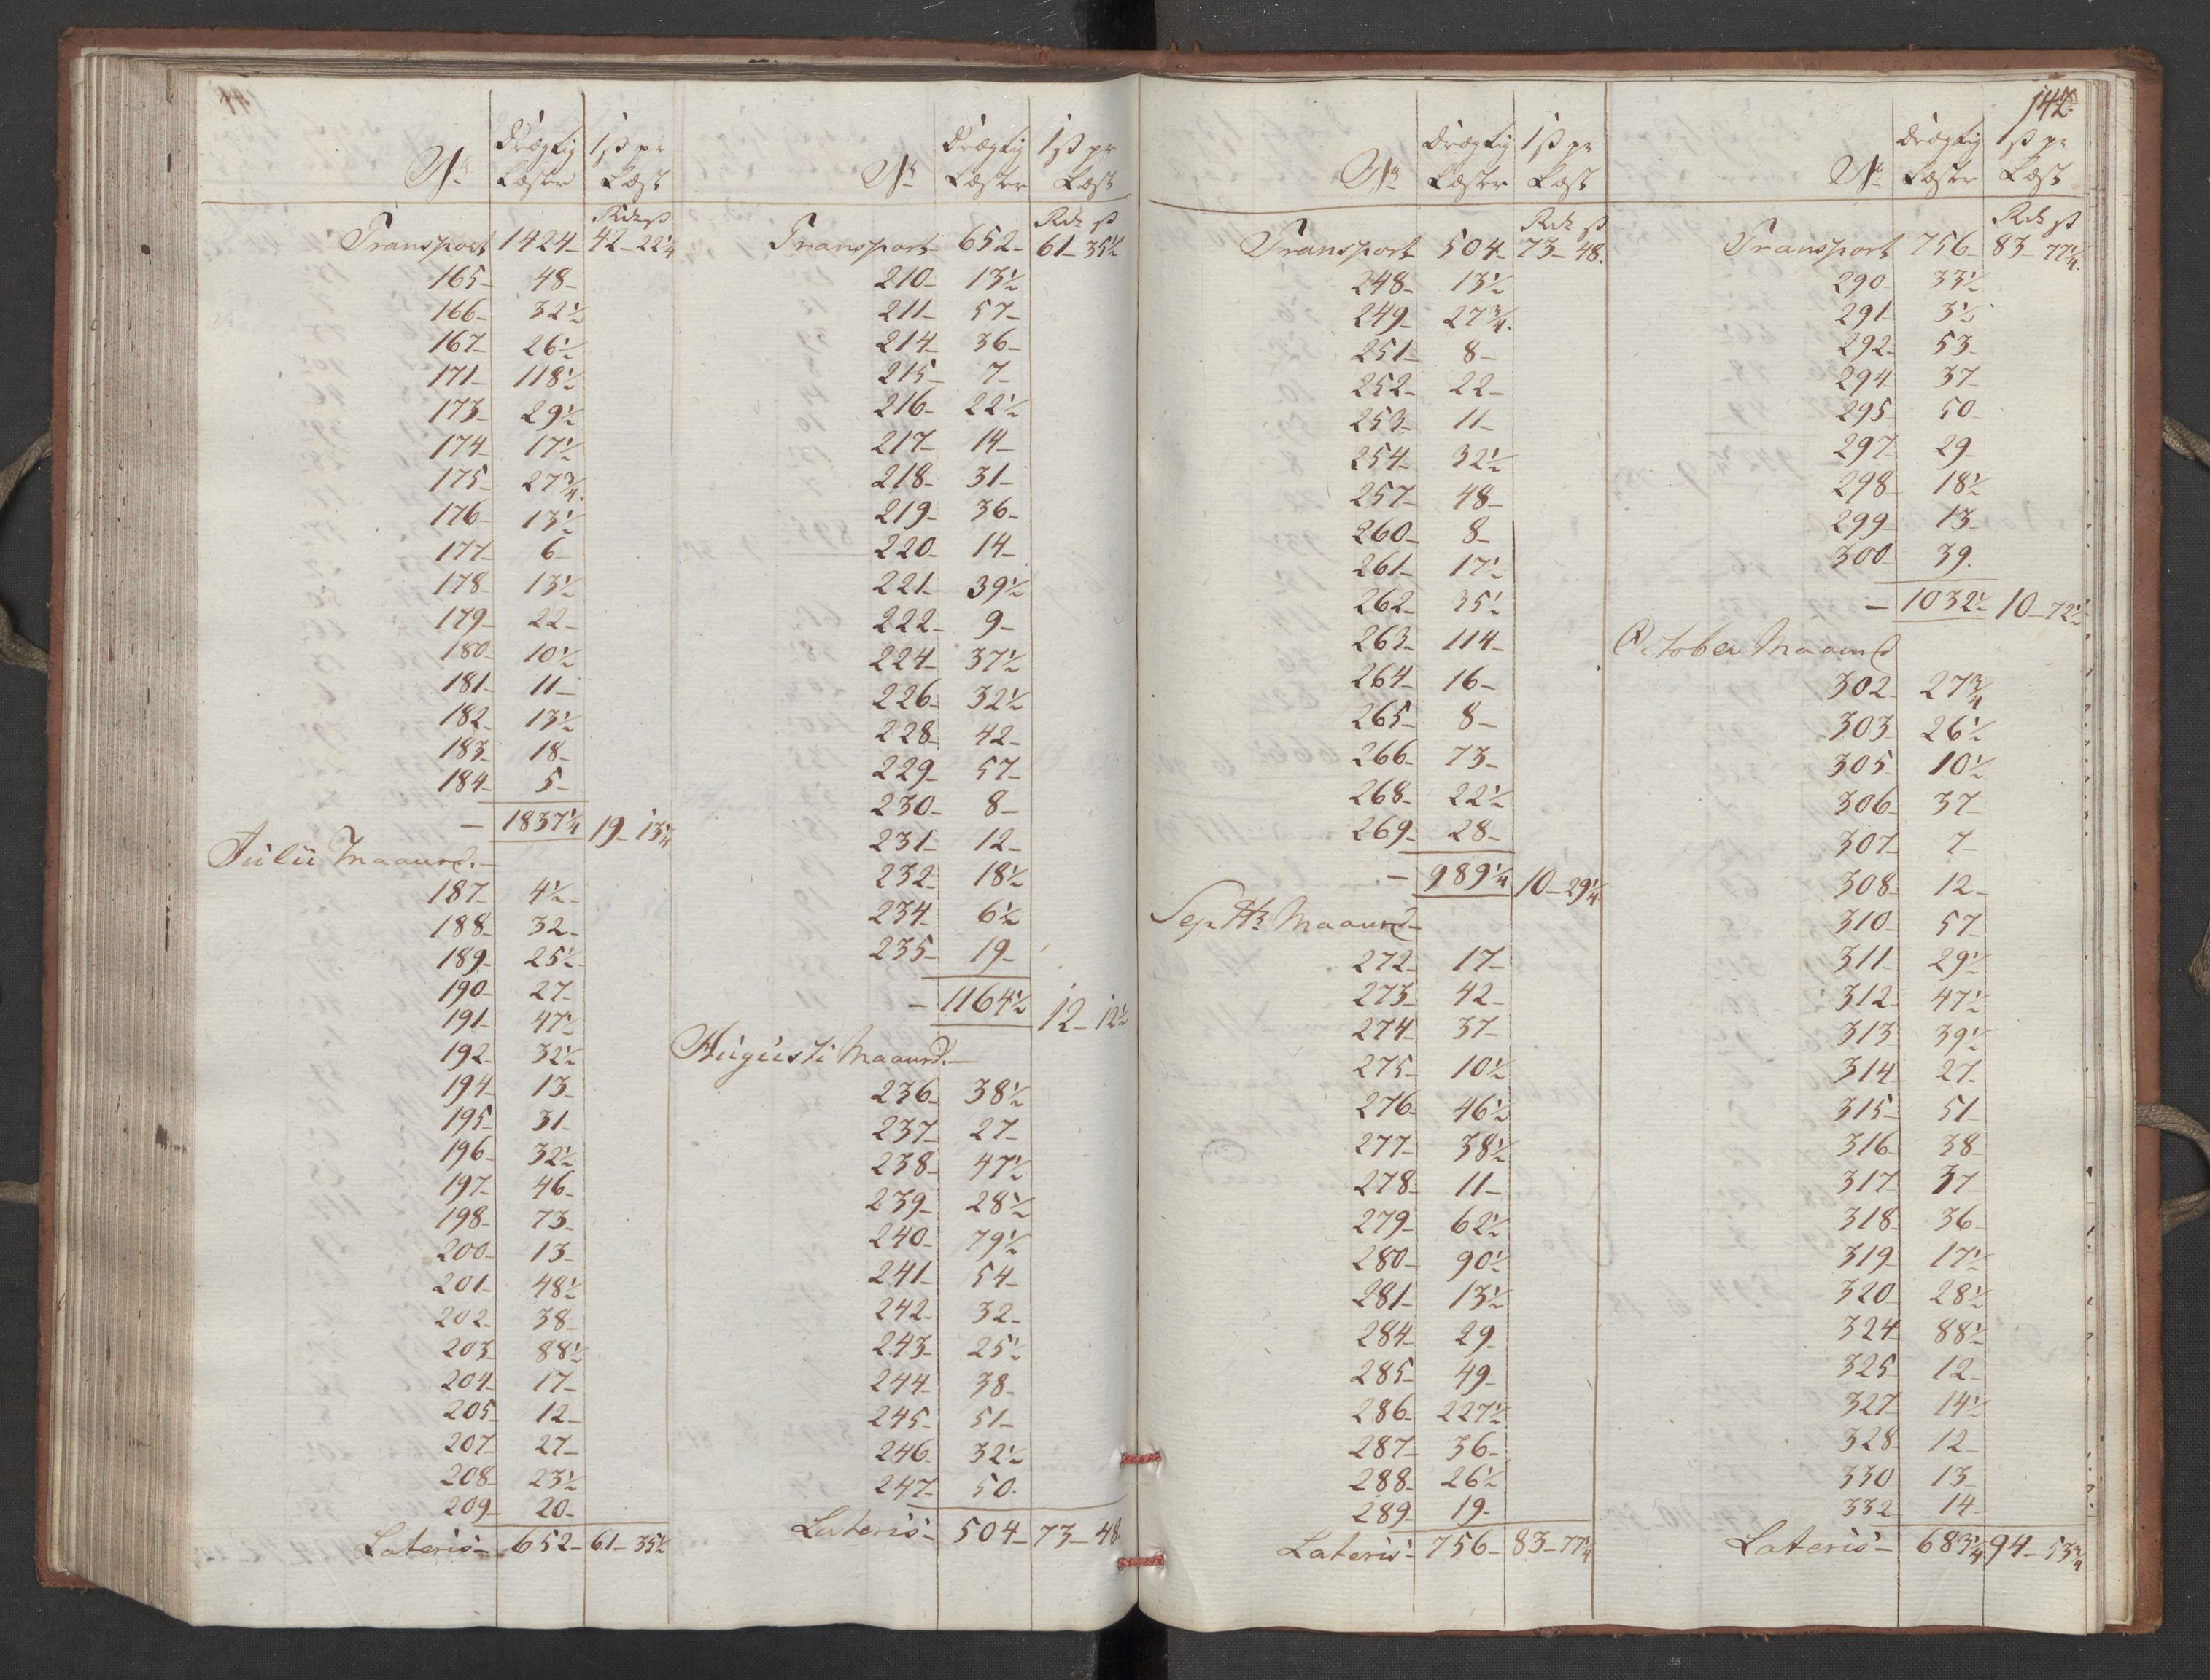 142.
No Drægtig Læster 1 ß pr Læst
Rdr ß
Transport 1424 - 42 - 22¼
165 - 48 -
166 - 32½
167 - 26½
171 - 118½
173 - 29½
174 - 17½
175 - 27¾.
176 - 13½
177 - 6 -
178 13½
179 - 22 -
180 - 10½
181 - 11 -
182 - 13½
183 - 18 -
184 - 5 -
- 1837¼ 19 - 13¼
Julii Maaned. -
187 - 4½ -
188 - 32 -
189 - 25½ -
190 - 27 -
191 - 47½
192 - 32½
194 - 13 -
195 - 31 -
196 - 32½
197 - 46 -
198 - 73 -
200 - 13 -
201 - 48½
202 - 38 -
203 - 88½
204 - 17 -
205 - 12 -
207 - 27 -
208 - 23½
209 - 20 -
Lateris - 652 - 61 - 35½
No Drægtig Læster 1 ß pr Læst
Rdr ß
Transport 652 - 61 - 35½
210 - 13½
211 - 57 -
214 - 36 -
215 - 7 -
216 - 22½
217 - 14 -
218 - 31 -
219 - 36 -
220 - 14 -
221 - 39½
222 - 9 -
224 - 37½
226 - 32½
228 - 42 -
229 - 57 -
230 - 8 -
231 - 12 -
232 - 18½
234 - 6½
235 - 19 -
- 1164½ 12 - 12½
Augusti Maaned. -
236 - 38½
237 - 27 -
238 - 47½
239 - 28½
240 - 79½
241 - 54 -
242 - 32 -
243 - 25½
244 - 38 -
245 - 51 -
246 - 32½
247 - 50 -
Lateris - 504 - 73 - 48
No Drægtig Læster 1 ß pr Læst
Rdr ß
Transport 504 - 73 - 48.
248 - 13½
249 - 27¾.
251 - 8 -
252 - 22 -
253 - 11 -
254 - 32½
257 - 48 -
260 - 8 -
261 - 17½
262 - 35½
263 - 114 -
264 - 16 -
265 - 8 -
266 - 73 -
268 - 22½
269 - 28 -
- 989¼ 10 - 29¼
Septbr Maaned -
272 - 17 -
273 - 42 -
274 - 37 -
275 - 10½
276 - 46½
277 - 38½
278 - 11 -
279 - 62½
280 - 90½
281 - 13½
284 - 29 -
285 - 49 -
286 - 227½
287 - 36 -
288 - 26½
289 - 19 -
Lateris - 756 - 83 - 77¼
No Drægtig Læster 1 ß pr Læst
Rdr ß
Transport 756 - 83 - 77¼.
290 - 33½
291 - 3½
292 - 53 -
294 - 37 -
295 - 50 -
297 - 29 -
298 - 18½
299 - 13 -
300 39.
- 1032½ 10 - 72½
October Maaned
302 - 27¾
303 - 26½
305 - 10½
306 - 37 -
307 - 7 -
308 - 12 -
310 - 57 -
311 - 29½
312 - 47½
313 - 39½
314 - 27 -
315 - 51 -
316 - 38 -
317 37 -
318 - 36 -
319 - 17½
320 - 28½
324 - 88½
325 - 12 -
327 - 14½
328 - 12 -
330 - 13 -
332 14 -
Lateris - 683¼ 94 - 53¾